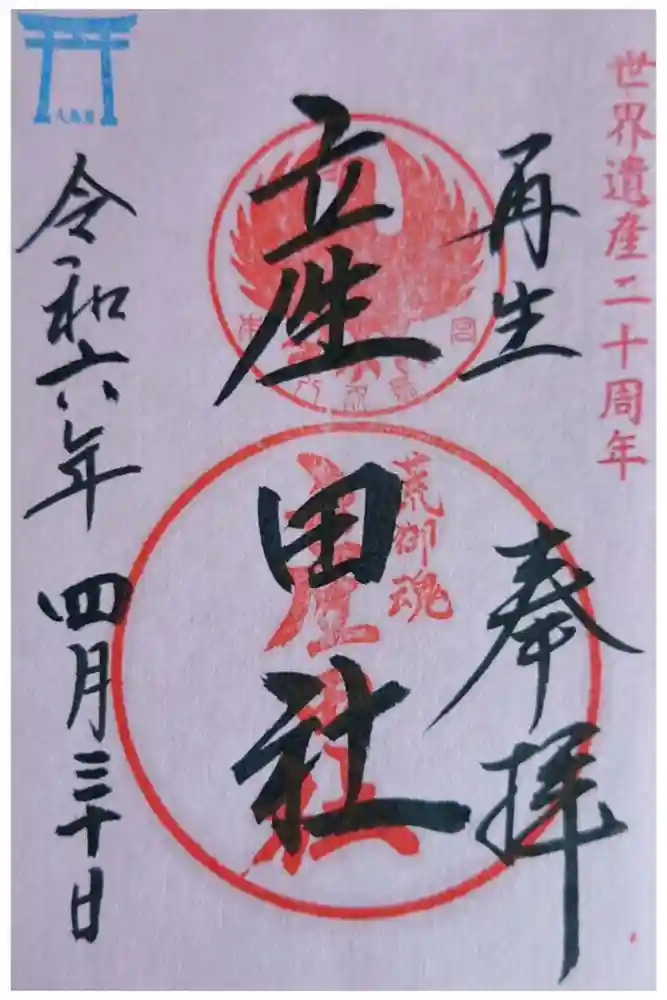 世界遺産二十周年
再生 奉拝
産田社
荒御魂
産田社
令和六年 四月三十日
大斎原